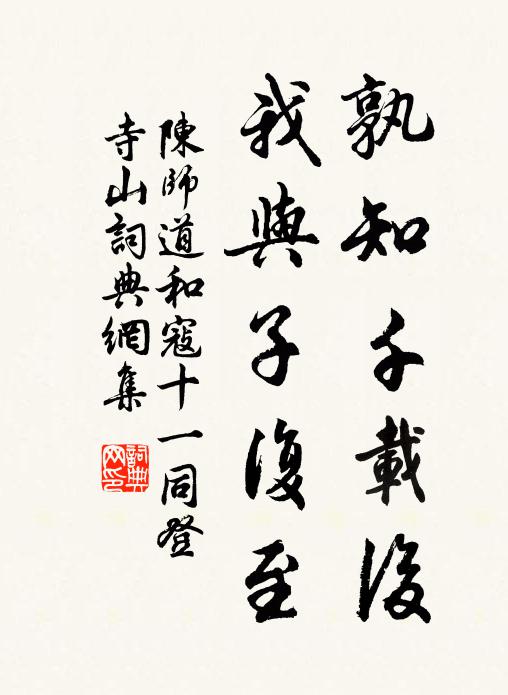 孰知千載後
我與子復至
陳師道和寇十一同登
寺山詞典網集
詞典网印